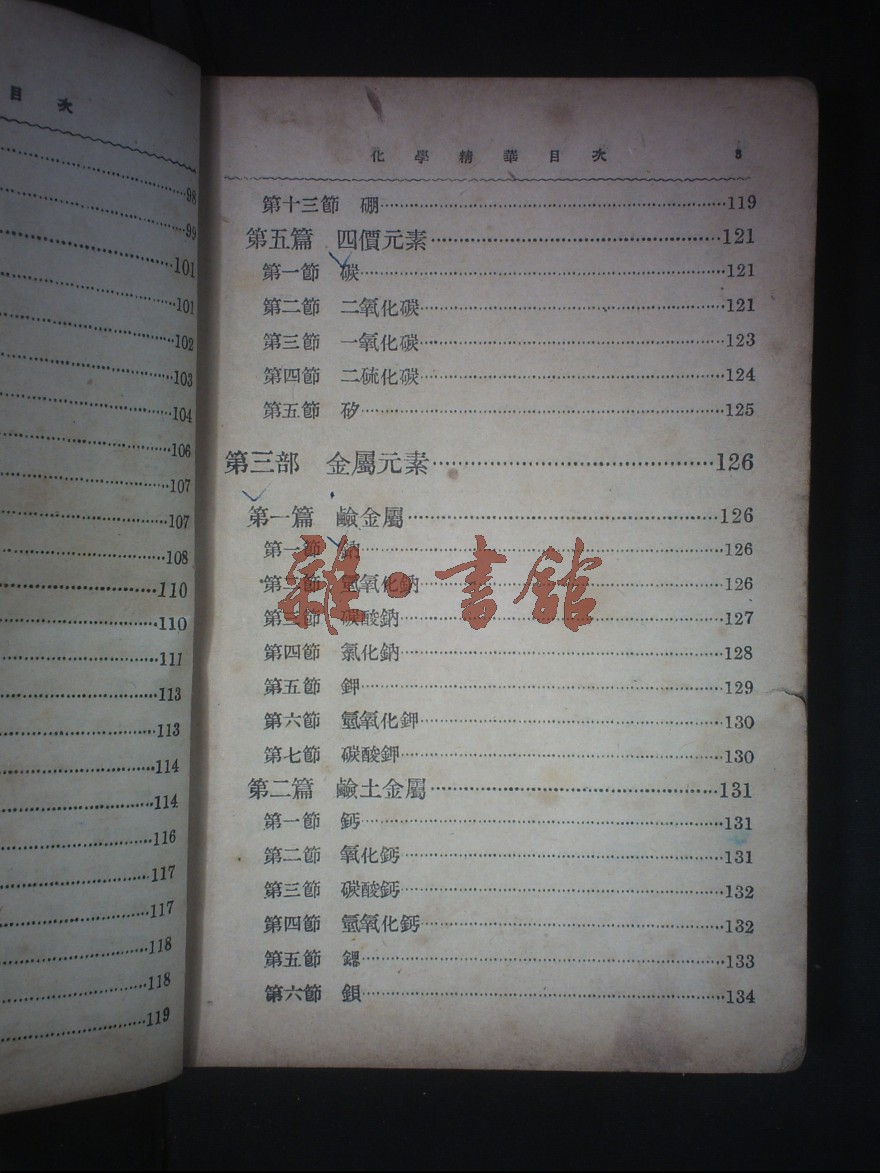 目次
98
99
101
101
102
103
104
106
107
107
108
110
110
111
113
113
114
114
116
117
117
118
118
119
化學精華目次 3
第十三節 硼 119
第五篇 四價元素 121
第一節 碳 121
第二節 二氧化碳 121
第三節 一氧化碳 123
第四節 二硫化碳 124
第五節 矽 125
第三部 金屬元素 126
第一篇 鹼金屬 126
第一節 鈉 126
第二節 氫氧化鈉 126
第三節 碳酸鈉 127
第四節 氯化鈉 128
第五節 鉀 129
第六節 氫氧化鉀 130
第七節 碳酸鉀 130
第二篇 鹼土金屬 131
第一節 鈣 131
第二節 氧化鈣 131
第三節 碳酸鈣 132
第四節 氫氧化鈣 132
第五節 鍶 133
第六節 鋇 134
雜·書館